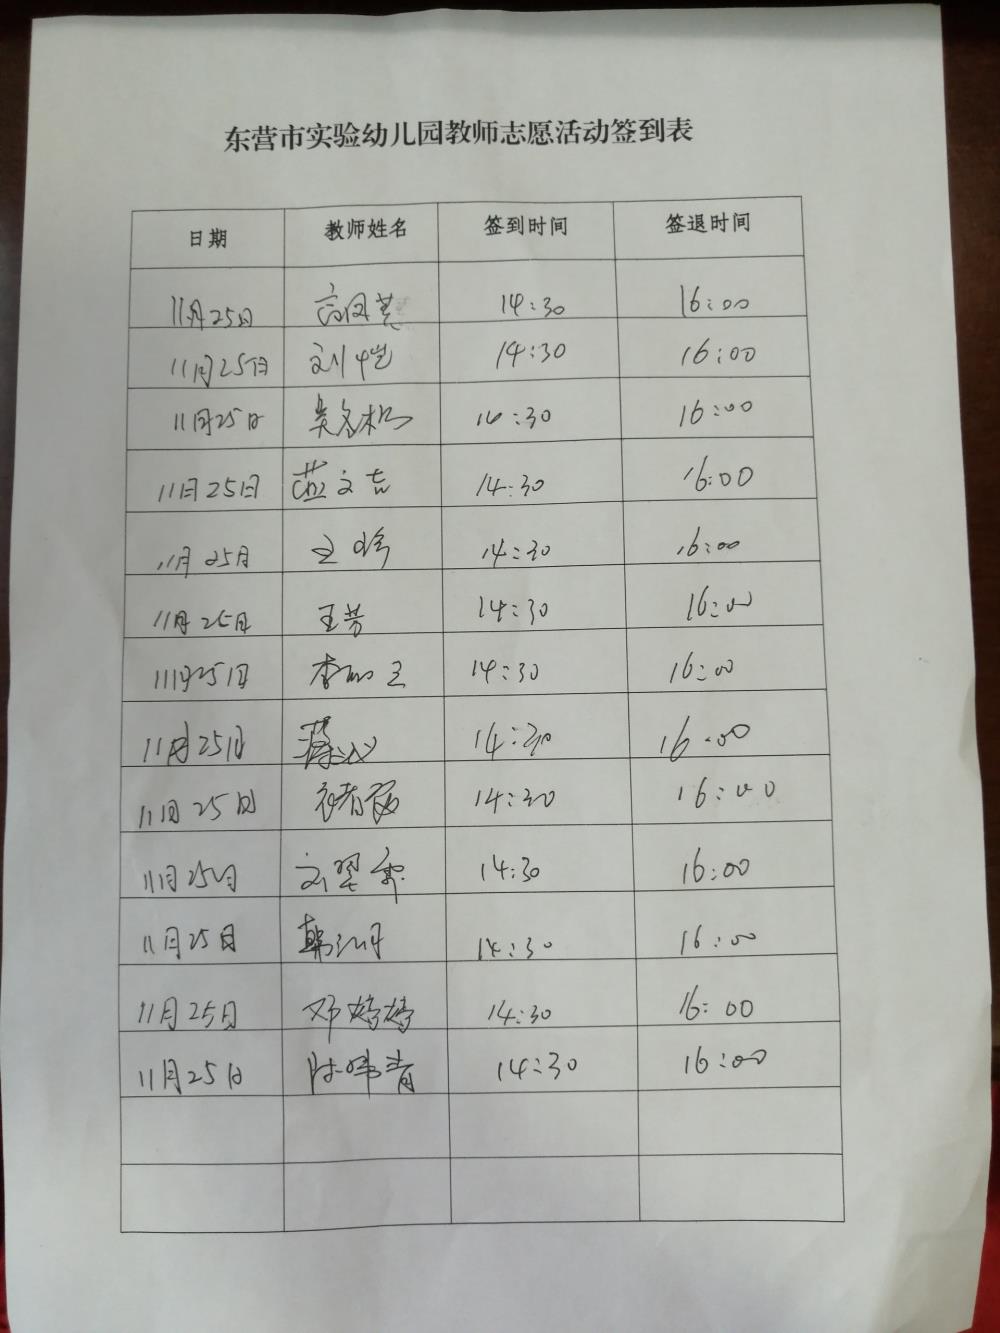 东营市实验幼儿园教师志愿活动签到表
日期 教师姓名 签到时间 签退时间
11月25日 14:30 16:00
11月25日 刘恺 14:30 16:00
11月25日 14:30 16:00
11月25日 文吉 14:30 16:00
11月25日 王珍 14:30 16:00
11月25日 王芳 14:30 16:00
11月25日 李 14:30 16:00
11月25日 14:30 16:00
11月25日 14:30 16:00
11月25日 刘翠 14:30 16:00
11月25日 韩 14:30 16:00
11月25日 邓婷婷 14:30 16:00
11月25日 陈玮青 14:30 16:00